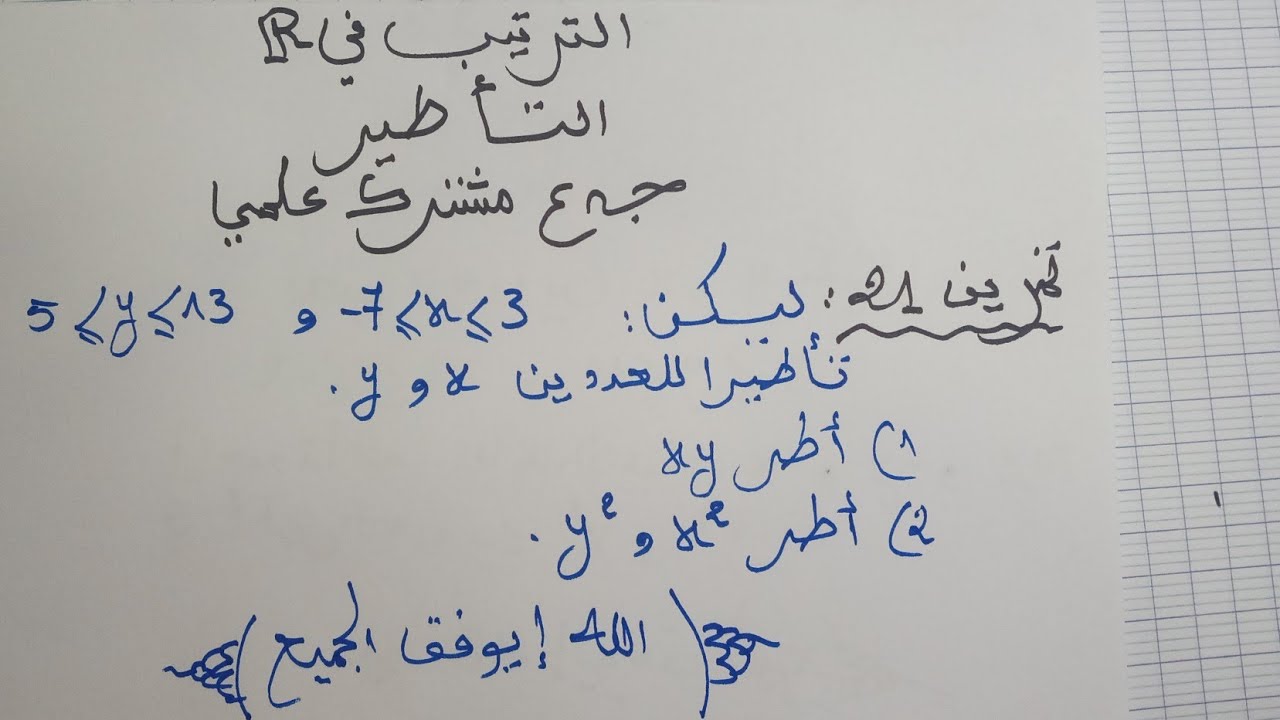 الترتيب في ℝ
التأطير
جدع مشترك علمي
تمرين 21: ليكن: -7 ≤ x ≤ 3 و 5 ≤ y ≤ 13
تأطيرا للعددين x و y.
1) أطر xy
2) أطر x² و y².
(الله إيوفق الجميع)